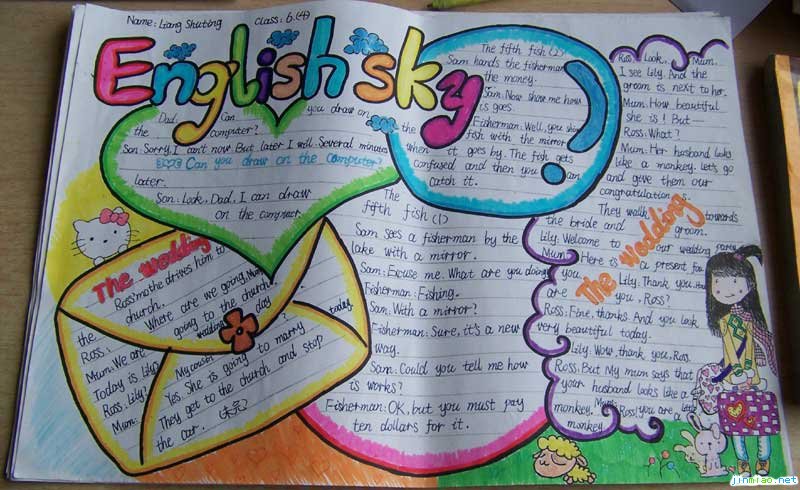 Name: Liang Shuting Class: 6.(4)
English sky
Dad: Can you draw on
the computer?
Son: Sorry, I can't now. But later I will. Several minutes
Can you draw on the computer?
later.
Son: Look, Dad, I can draw
on the computer.
The wedding
Ross' mother drives him to
the church.
Ross: Where are we going, Mum?
Mum: We are going to the church.
Today is Lily wedding day
Ross: Lily?
Mum: My cousin? today
Yes. She is going to marry
They get to the church and stop
the car.
The fifth fish (1)
Sam sees a fisherman by the
lake with a mirror.
Sam: Excuse me. What are you doing?
Fisherman: Fishing.
Sam: With a mirror?
Fisherman: Sure, it's a new
way.
Sam: Could you tell me how
is works?
Fisherman: OK, but you must pay
ten dollars for it.
The fifth fish (2)
Sam hands the fisherman
the money.
Sam: Now show me how
is goes.
Fisherman: Well, you shine
the fish with the mirror
when it goes by. The fish gets
confused and then you can
catch it.
The wedding
Ross: Look, Mum.
I see Lily. And the
groom is next to her.
Mum: How beautiful
she is! But—
Ross: What?
Mum: Her husband looks
like a monkey. let's go
and give them our
congratulation s.
They walk towards
the bride and groom.
Lily: Welcome to our wedding party
Mum: Here is a present for
you.
Lily: Thank you. How
are you, Ross?
Ross: Fine, thanks. And you look
very beautiful today.
Lily: Wow, thank you, Ross.
Ross: But My mum says that
your husband looks like a
monkey.
Mum: Ross! you are a little
monkey
jinmiao.net